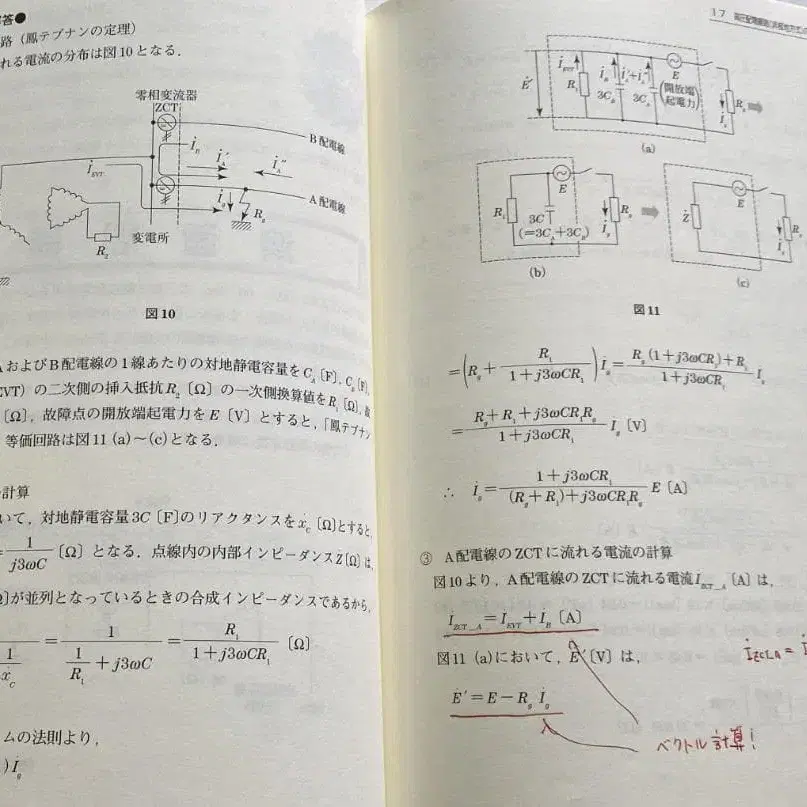 解答●
路（鳳テブナンの定理）
れる電流の分布は図10となる．
零相変流器
ZCT
B配電線
İ_B
İ_EVT
İ_A′
İ_A″
A配電線
İ_g
R_g
R_2
変電所
図10
AおよびB配電線の1線あたりの対地静電容量をC_A〔F〕，C_B〔F〕，
EVT）の二次側の挿入抵抗R_2〔Ω〕の一次側換算値をR_1〔Ω〕，
〔Ω〕，故障点の開放端起電力をE〔V〕とすると，「鳳テブナン
等価回路は図11（a）～（c）となる．
計算
いて，対地静電容量3C〔F〕のリアクタンスをẋ_C〔Ω〕とすると，
= 1/(j3ωC)〔Ω〕となる．点線内の内部インピーダンスŻ〔Ω〕は，
Ω〕が並列となっているときの合成インピーダンスであるから，
1/ẋ_C = 1/(1/R_1 + j3ωC) = R_1/(1 + j3ωCR_1)〔Ω〕
ムの法則より，
)İ_g
17
Ė′
İ_EVT
R_1
İ_B
3C_B
İ_A′+İ_A″
3C_A
E
（開放端起電力）
İ_g
R_g
(a)
R_1
3C
(=3C_A+3C_B)
E
İ_g
R_g
(b)
Ż
E
İ_g
R_g
(c)
図11
= (R_g + R_1/(1 + j3ωCR_1)) İ_g = (R_g(1 + j3ωCR_1) + R_1)/(1 + j3ωCR_1) İ_g
= (R_g + R_1 + j3ωCR_1R_g)/(1 + j3ωCR_1) İ_g〔V〕
∴ İ_g = (1 + j3ωCR_1)/((R_g + R_1) + j3ωCR_1R_g) E〔A〕
③ A配電線のZCTに流れる電流の計算
図10より，A配電線のZCTに流れる電流İ_ZCT_A〔A〕は，
İ_ZCT_A = İ_EVT + İ_B〔A〕
図11（a）において，Ė′〔V〕は，
İ_ZCT_A = İ
Ė′ = E − R_g İ_g
ベクトル計算!